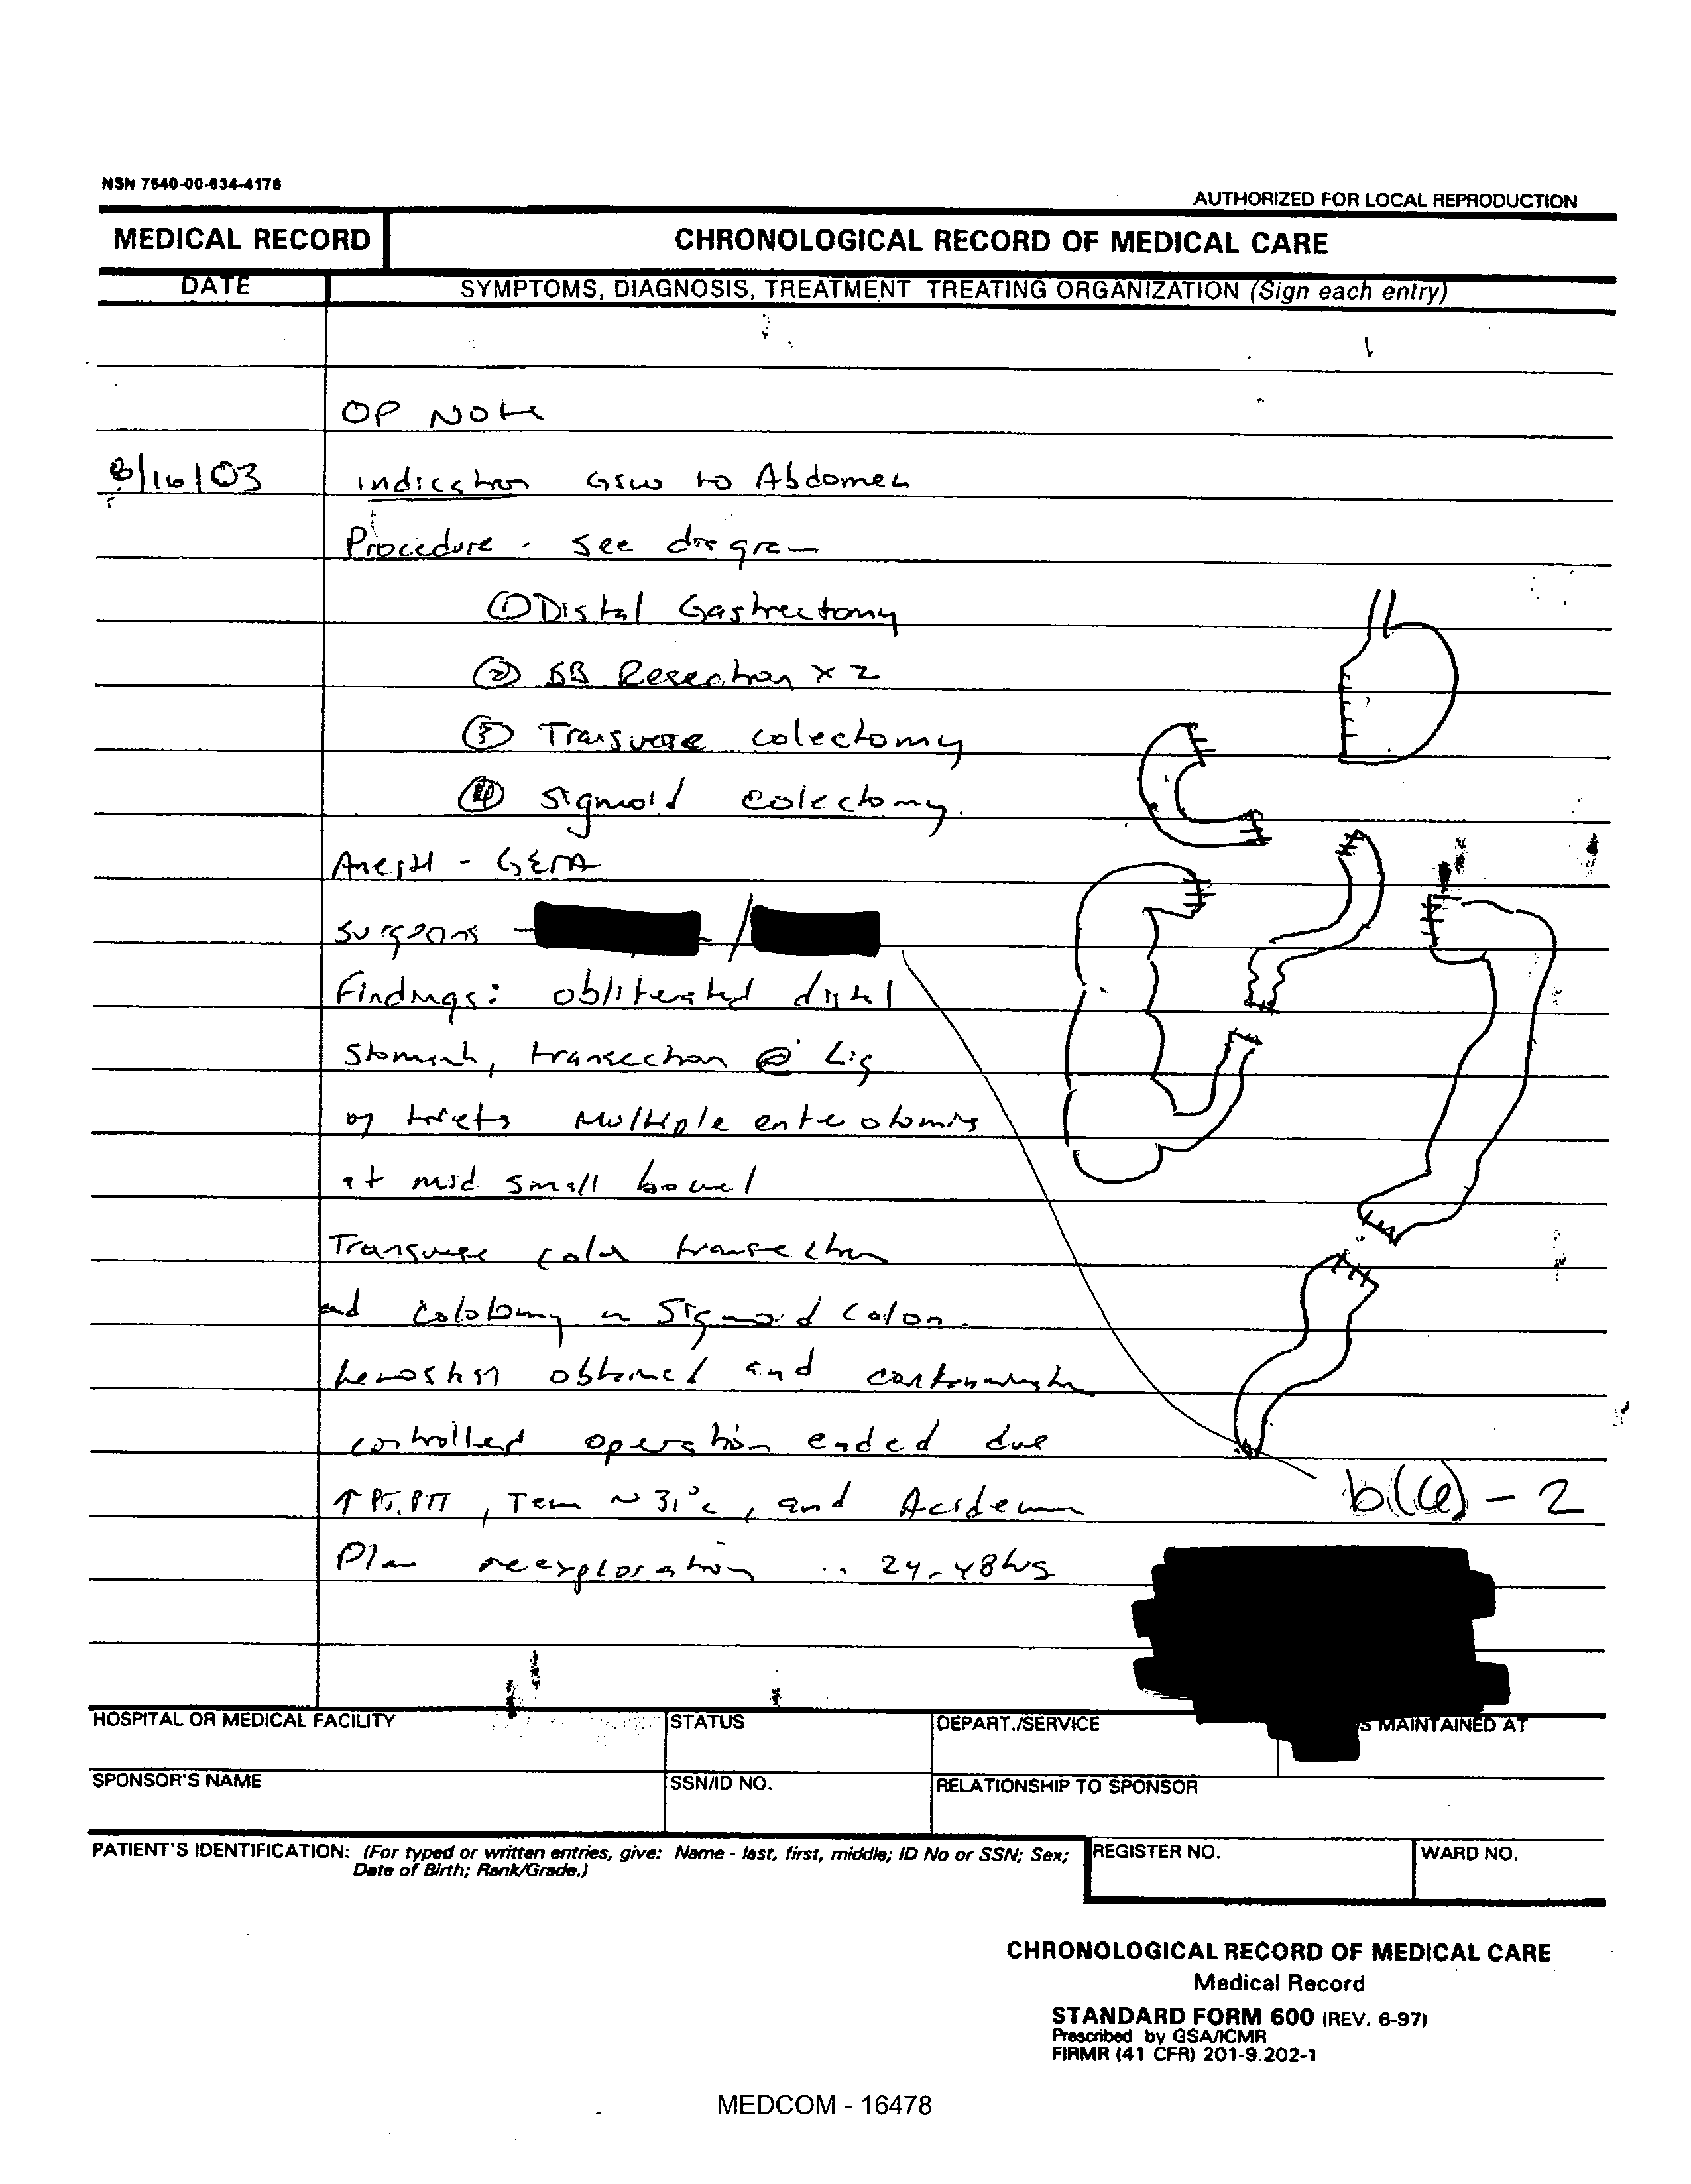 NSN 7540-00-634-4176
AUTHORIZED FOR LOCAL REPRODUCTION
MEDICAL RECORD
CHRONOLOGICAL RECORD OF MEDICAL CARE
DATE
SYMPTOMS, DIAGNOSIS, TREATMENT TREATING ORGANIZATION (Sign each entry)
OP Note
8/16/03 indication GSW to Abdomen
Procedure - see diagram
① Distal Gastrectomy
② SB Resection x 2
③ Transverse colectomy
④ Sigmoid colectomy.
- GETA
Surgeons - /
Findings: obliterated distal
stomach, transection @ Lig
of triets Multiple enterotomies
at mid small bowel
Transverse colon transection
and colotomy in Sigmoid Colon.
hemostasis obtained and contamination
controlled operation ended due
↑ PT, PTT, Tem ~ 31°C, and
Plan reexploration in 24-48hrs
b(6) - 2
HOSPITAL OR MEDICAL FACILITY
STATUS
DEPART./SERVICE
S MAINTAINED AT
SPONSOR'S NAME
SSN/ID NO.
RELATIONSHIP TO SPONSOR
PATIENT'S IDENTIFICATION: (For typed or written entries, give: Name - last, first, middle; ID No or SSN; Sex;
Date of Birth; Rank/Grade.)
REGISTER NO.
WARD NO.
CHRONOLOGICAL RECORD OF MEDICAL CARE
Medical Record
STANDARD FORM 600 (REV. 6-97)
Prescribed by GSA/ICMR
FIRMR (41 CFR) 201-9.202-1
MEDCOM - 16478